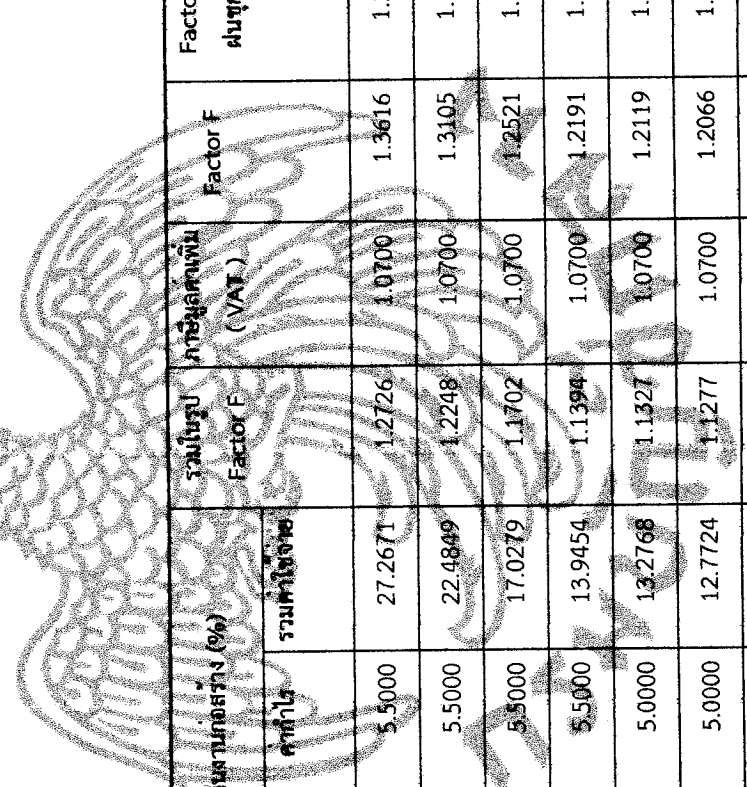 งานก่อสร้าง (%) รวมในรูป ภาษีมูลค่าเพิ่ม Factor F
ค่ากำไร รวมค่าใช้จ่าย Factor F ( VAT )
5.5000 27.2671 1.2726 1.0700 1.3616 1.
5.5000 22.4849 1.2248 1.0700 1.3105 1.
5.5000 17.0279 1.1702 1.0700 1.2521 1.
5.5000 13.9454 1.1394 1.0700 1.2191 1.
5.0000 13.2768 1.1327 1.0700 1.2119 1.
5.0000 12.7724 1.1277 1.0700 1.2066 1.